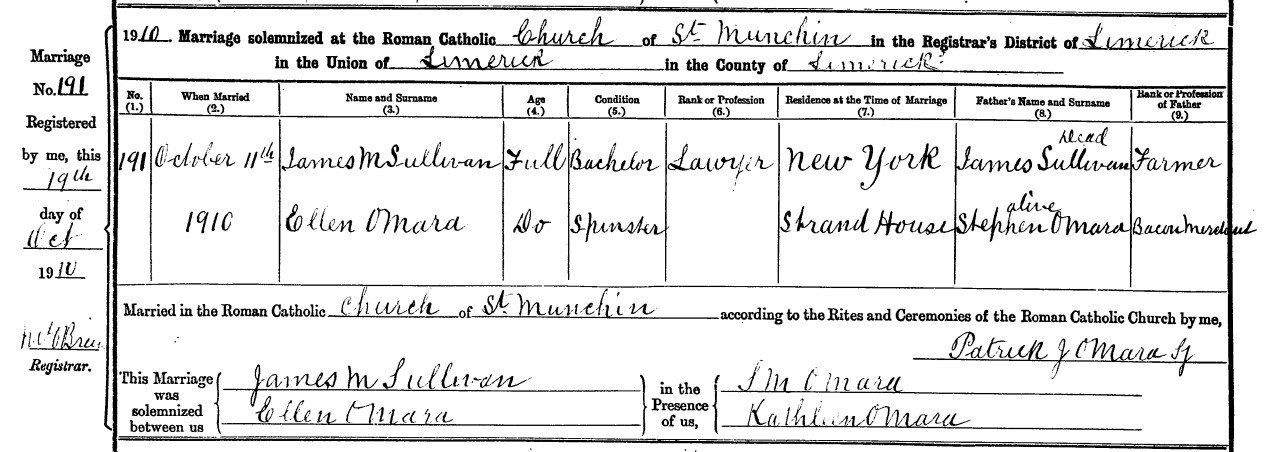 1910. Marriage solemnized at the Roman Catholic Church of St Munchin in the Registrar's District of Limerick
in the Union of Limerick in the County of Limerick
Marriage
No. 191
Registered
by me, this
19th
day of
Oct
1910
Registrar.
No. (1.) When Married (2.) Name and Surname (3.) Age (4.) Condition (5.) Rank or Profession (6.) Residence at the Time of Marriage (7.) Father's Name and Surname (8.) Rank or Profession of Father (9.)
Dead
191 October 11th James M Sullivan Full Bachelor Lawyer New York James Sullivan Farmer
alive
1910 Ellen O'Mara Do Spinster Strand House Stephen O'Mara Bacon Merchant
Married in the Roman Catholic Church of St Munchin according to the Rites and Ceremonies of the Roman Catholic Church by me,
Patrick J O'Mara
This Marriage was solemnized between us
James M Sullivan
Ellen O'Mara
in the Presence of us,
S M O'Mara
Kathleen O'Mara